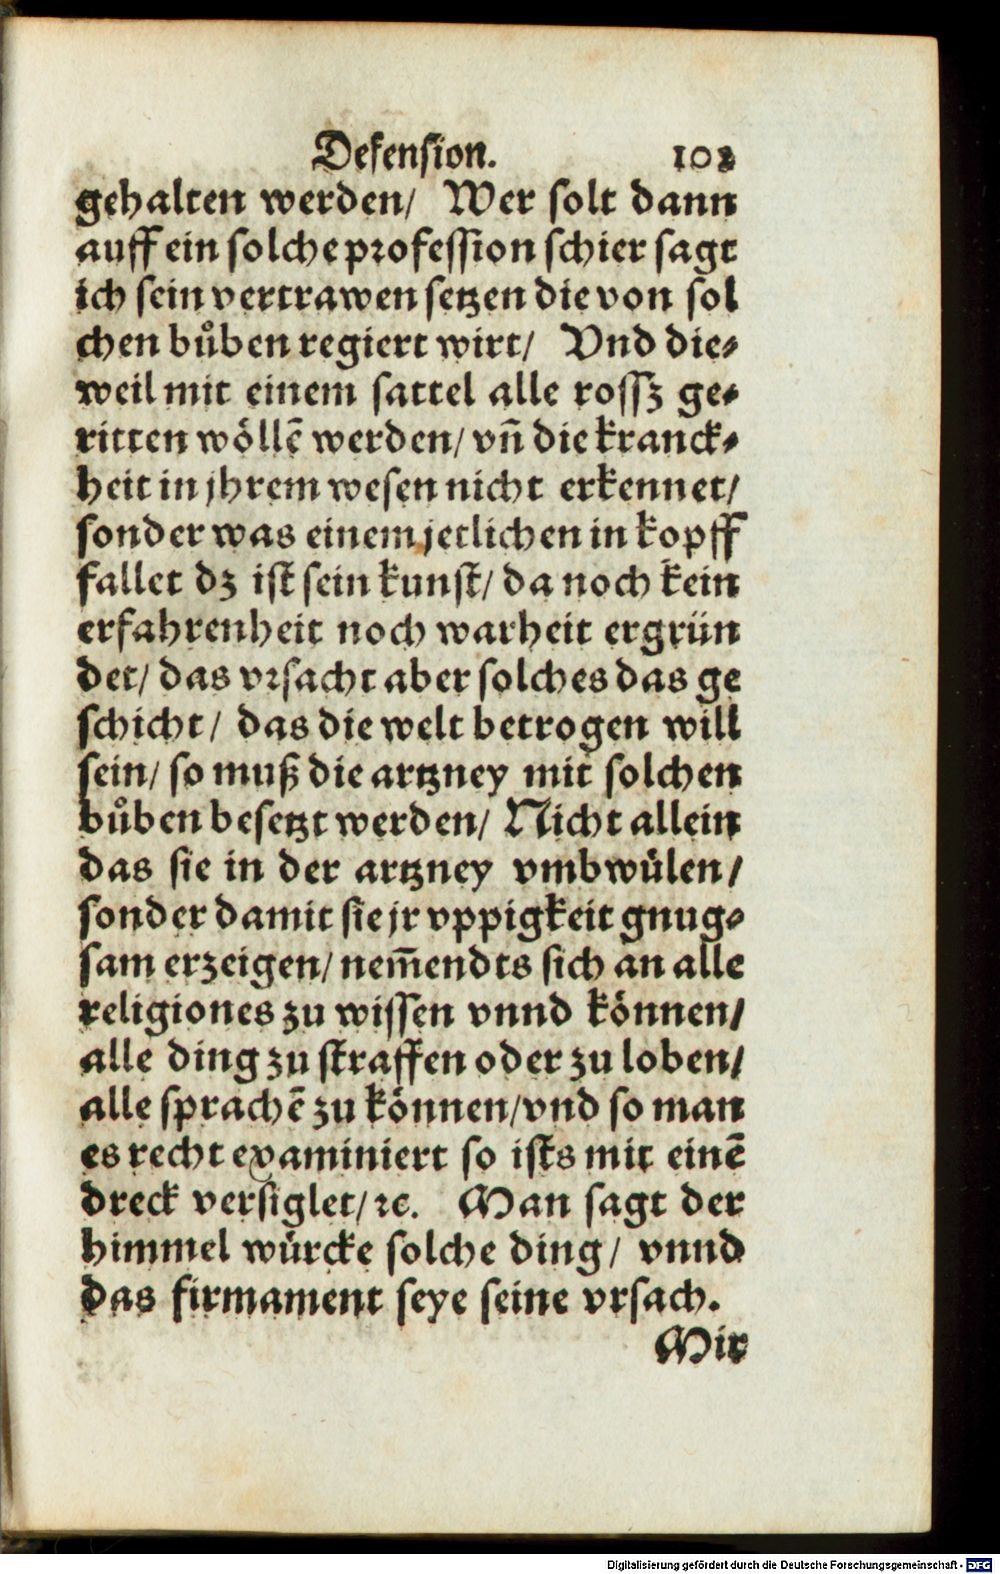 Defension. 102
gehalten werden/ Wer solt dann
auff ein solche profession schier sagt
ich sein vertrawen setzen die von sol
chen bůben regiert wirt/ Vnd die-
weil mit einem sattel alle rossz ge-
ritten wöllē werden/ vn̄ die kranck-
heit in jhrem wesen nicht erkennet/
sonder was einem jetlichen in kopff
fallet dz ist sein kunst/ da noch kein
erfahrenheit noch warheit ergrün
det/ das vrsacht aber solches das ge
schicht/ das die welt betrogen will
sein/ so muß die artzney mit solchen
bůben besetzt werden/ Nicht allein
das sie in der artzney vmbwülen/
sonder damit sie jr vppigkeit gnug-
sam erzeigen/ nem̄endts sich an alle
religiones zu wissen vnnd können/
alle ding zu straffen oder zu loben/
alle sprachē zu können/ vnd so man
es recht examiniert so ists mit einē
dreck versiglet/ ꝛc. Man sagt der
himmel würcke solche ding/ vnnd
das firmament seye seine vrsach.
Mir
Digitalisierung gefördert durch die Deutsche Forschungsgemeinschaft - DFG